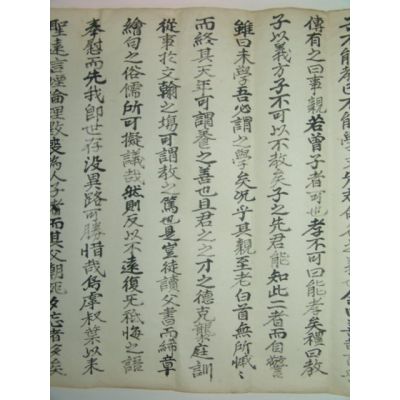 傳有之曰事親若曾子者可也孝不可曰能孝矣禮曰教
子以義方子不可以不教矣子之先君能知此二者而自警
雖曰未學吾必謂之學矣况乎其親至老白首無所憾
而終其天年可謂養之善也且君之之才之德克襲庭訓
從事於文翰之場可謂教之篤也是豈徒讀父書而絺章
繪句之俗儒所可擬議哉然則反以不遠復无祗悔之語
奉慰而先我卽世存沒異路可勝惜哉嗚虖叔葉以來
聖遠言湮倫理斁喪爲人子者而其父朝死夕忘者多矣